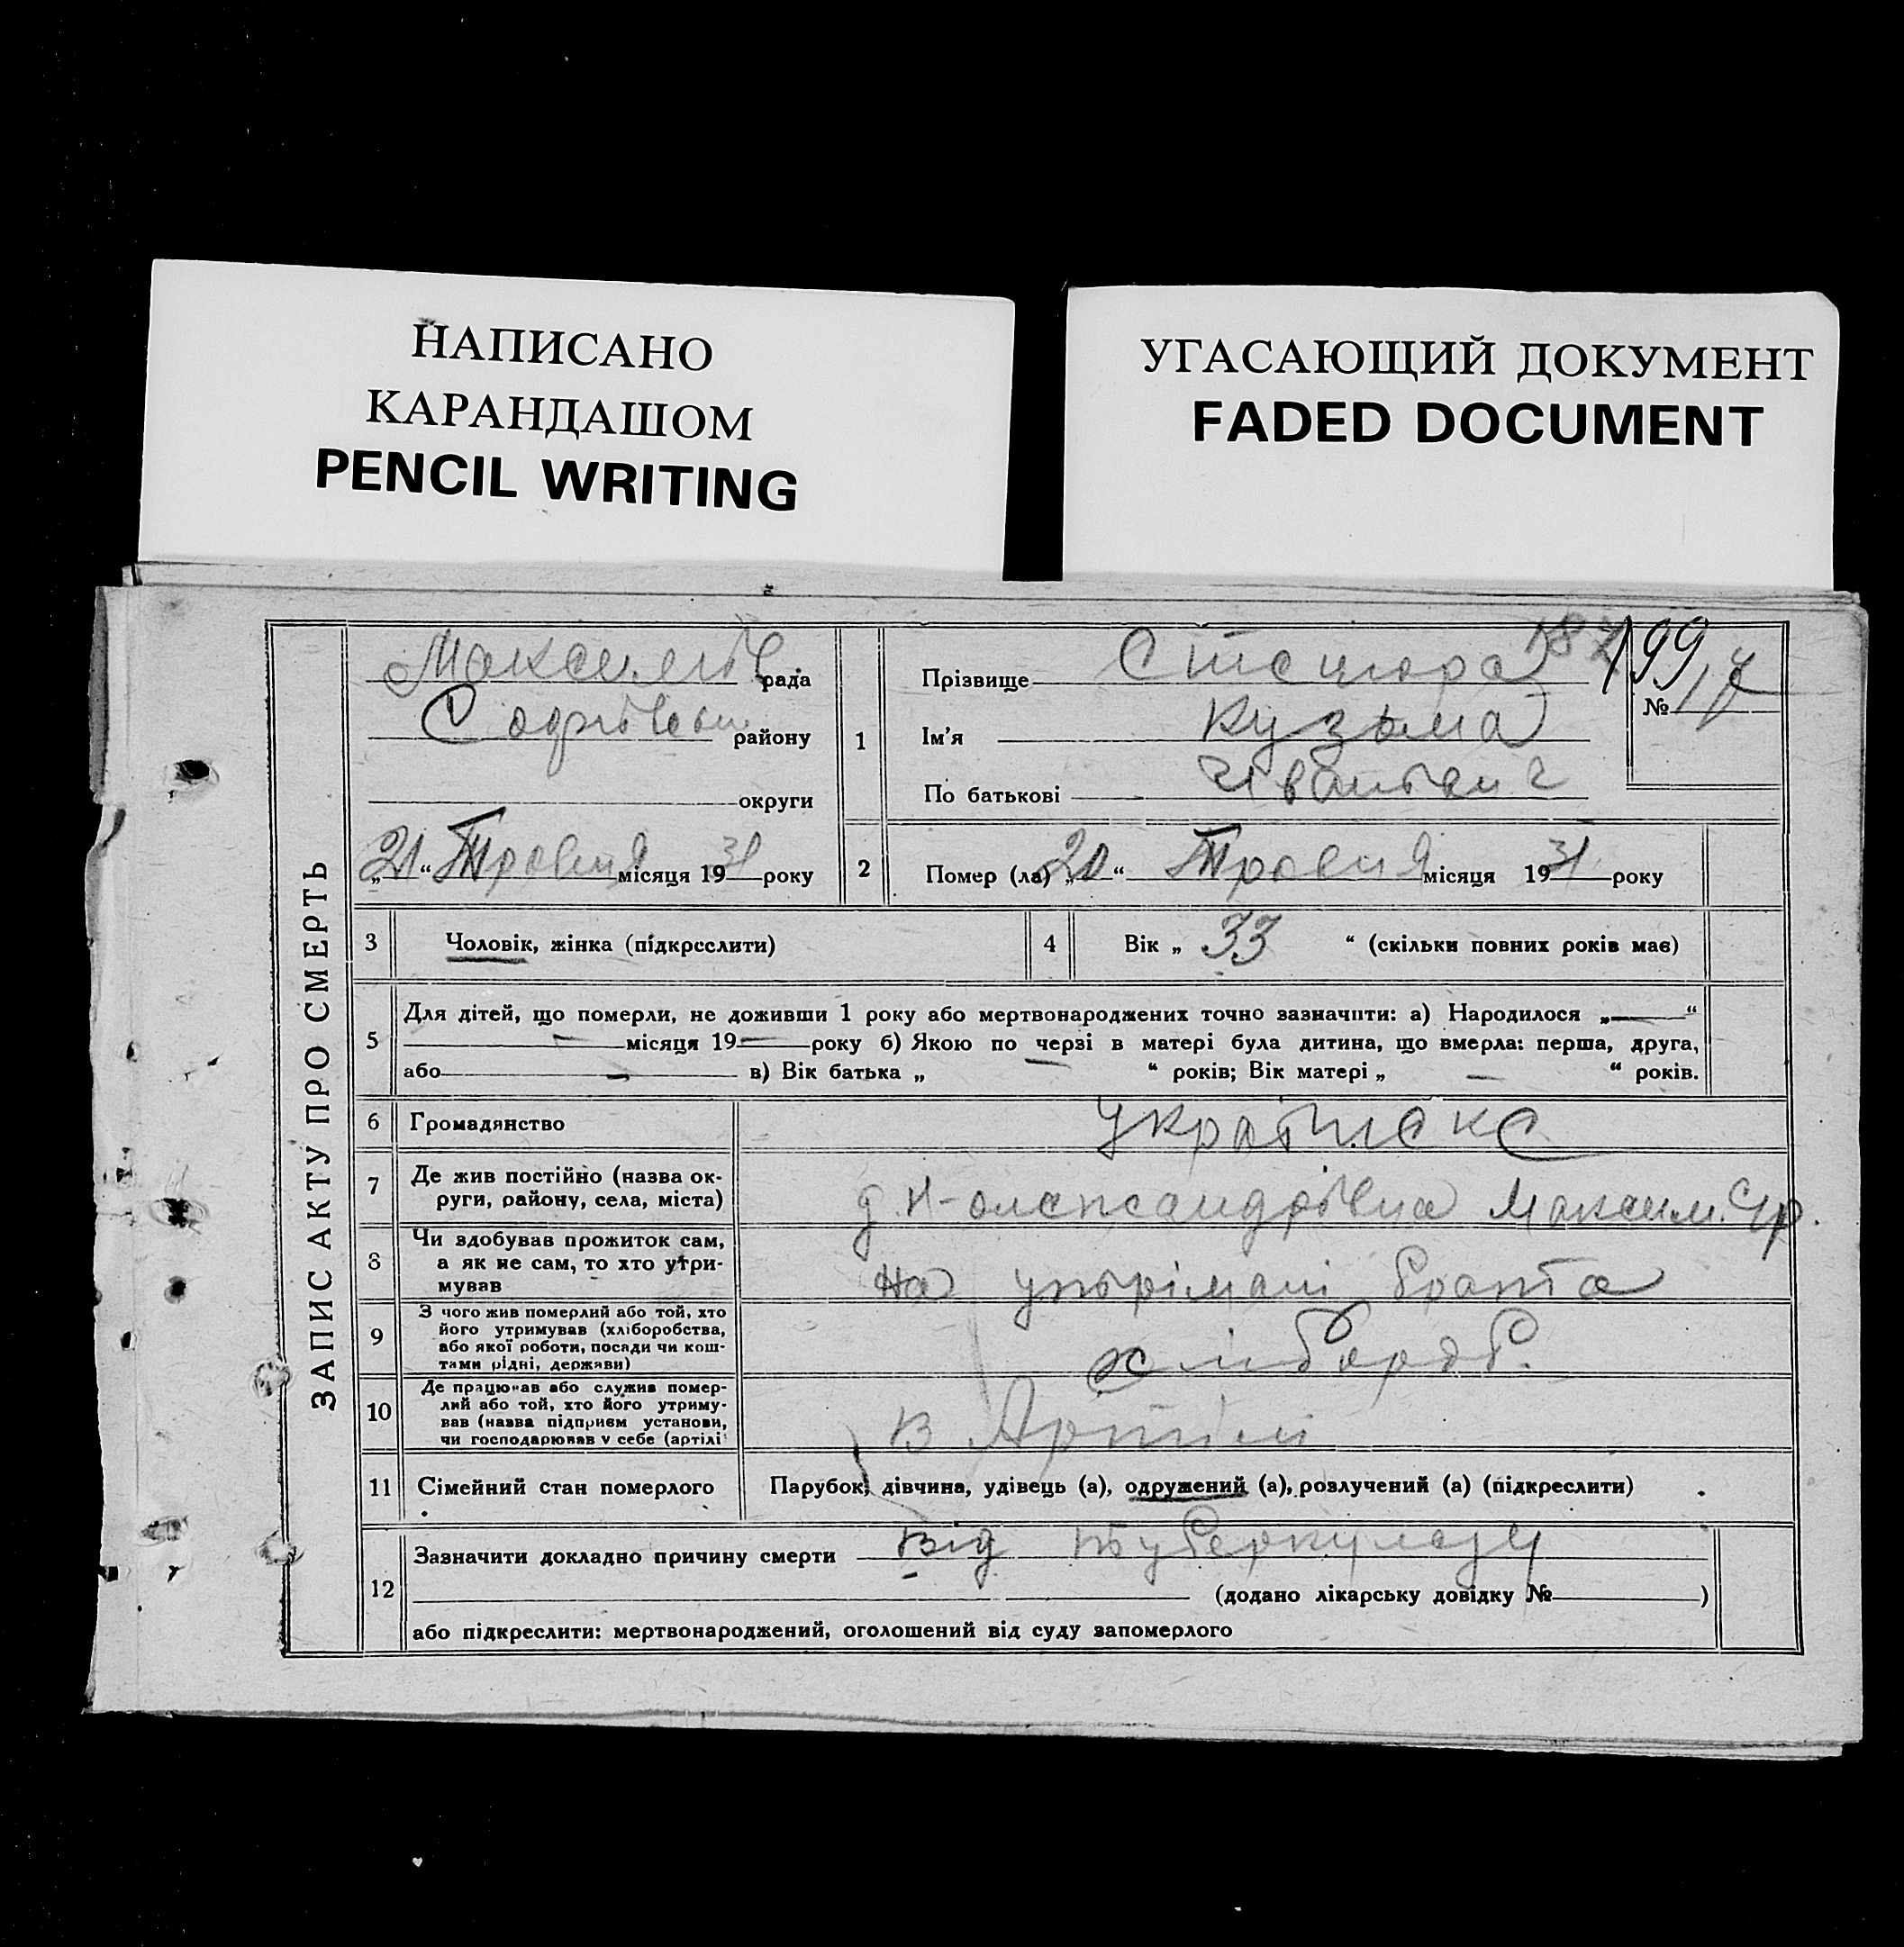 НАПИСАНО
КАРАНДАШОМ
PENCIL WRITING
УГАСАЮЩИЙ ДОКУМЕНТ
FADED DOCUMENT
ЗАПИС АКТУ ПРО СМЕРТЬ
рада
району
округи
„21“ Травня місяця 1931 року
1
Прізвище Стецюра
Ім’я Кузьма
По батькові Іванович
199
№ 17
2
Помер (ла) „20“ Травня місяця 1931 року
3 Чоловік, жінка (підкреслити)
4 Вік „ 33 “ (скільки повних років має)
5
Для дітей, що померли, не доживши 1 року або мертвонароджених точно зазначити: а) Народилося „—“
— місяця 19— року б) Якою по черзі в матері була дитина, що вмерла: перша, друга,
або — в) Вік батька „ — “ років; Вік матері „ — “ років.
6 Громадянство
7 Де жив постійно (назва ок-
руги, району, села, міста)
д. Н-олександрівна Максим. С/р.
8 Чи здобував прожиток сам,
а як не сам, то хто утри-
мував
на утрімані брата
9 З чого жив померлий або той, хто
його утримував (хліборобства,
або якої роботи, посади чи кош-
тами рідні, держави)
хлібороб.
10 Де працював або служив помер-
лий або той, хто його утриму-
вав (назва підприєм установи,
чи господарював у себе (артілі
в Артілі
11 Сімейний стан померлого
Парубок, дівчина, удівець (а), одружений (а), розлучений (а) (підкреслити)
12
Зазначити докладно причину смерти від туберкульозу
(додано лікарську довідку № )
або підкреслити: мертвонароджений, оголошений від суду запомерлого